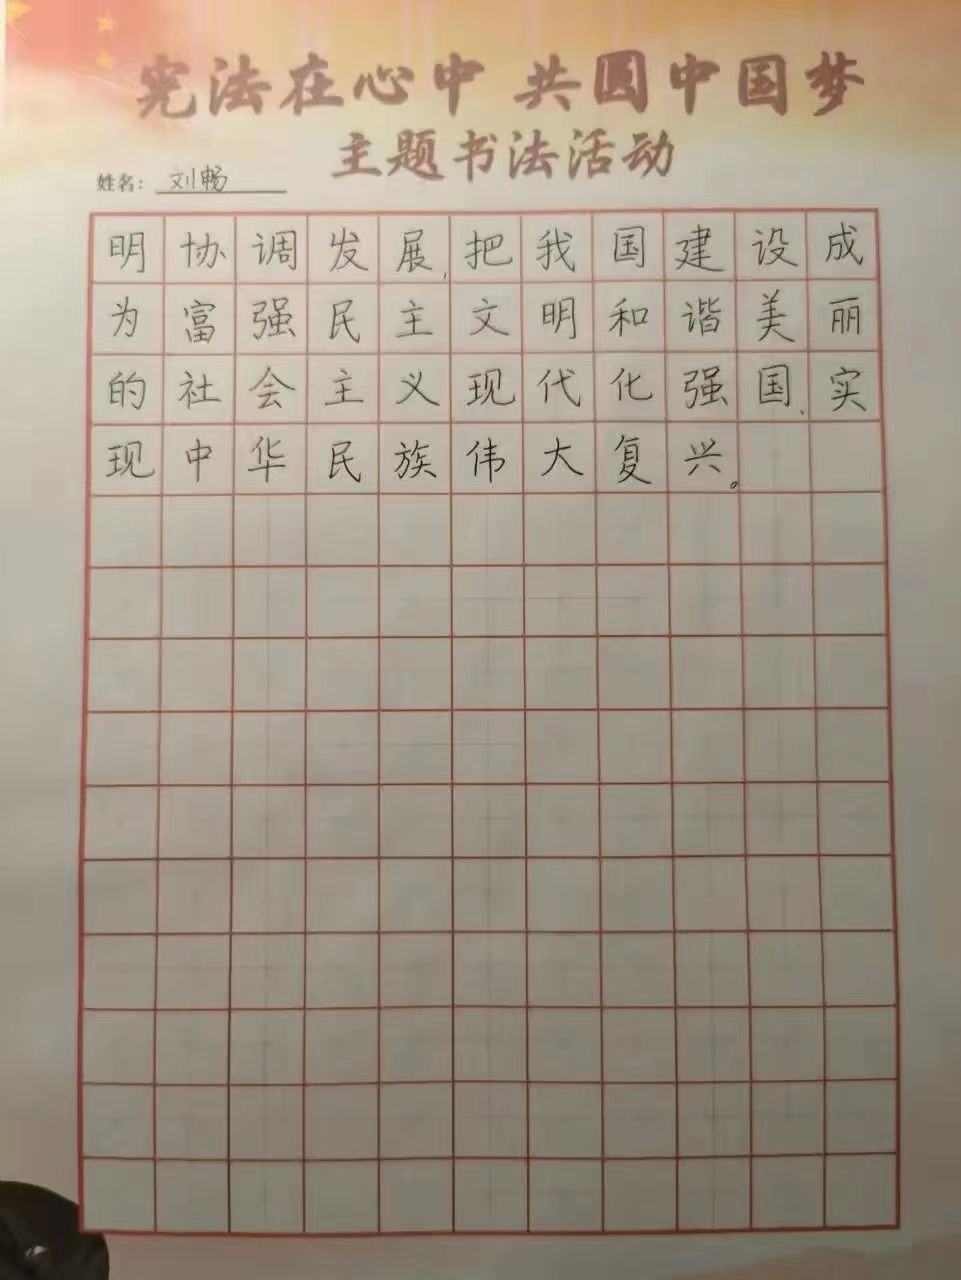 宪法在心中 共圆中国梦
主题书法活动
姓名：刘畅
明协调发展，把我国建设成
为富强民主文明和谐美丽
的社会主义现代化强国、实
现中华民族伟大复兴。